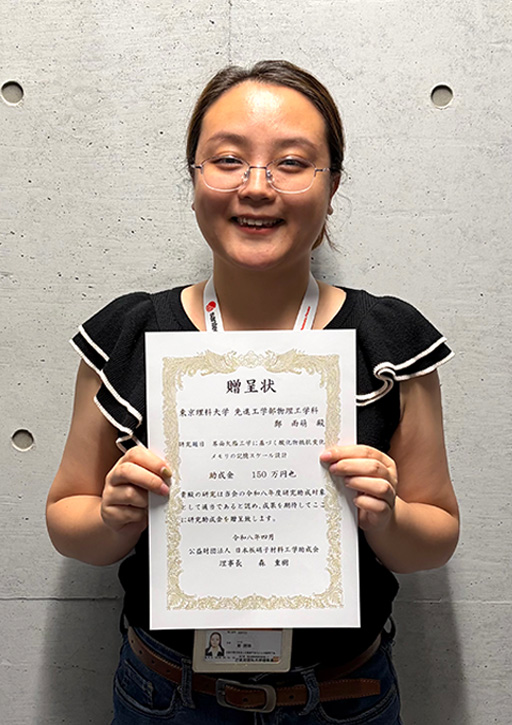 贈呈状
東京理科大学 先進工学部物理工学科
鄭 雨萌 殿
研究題目 革命欠陥工学に基づく酸化物抵抗変化
メモリの記憶スケール設計
助成金 150万円也
貴殿の研究は当会の令和八年度研究助成対象
として適当であると認め、成果を期待してここ
に研究助成金を贈呈致します。
令和八年四月
公益財団法人 日本板硝子材料工学助成会
理事長 森 重樹